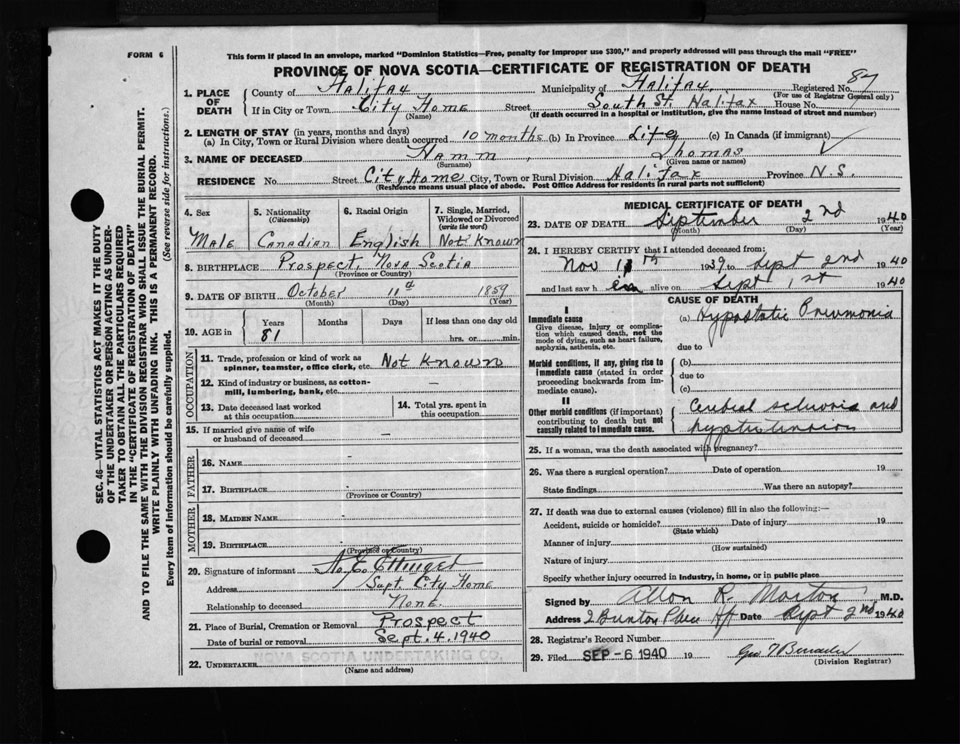 FORM 6
This form if placed in an envelope, marked "Dominion Statistics—Free, penalty for improper use $300," and properly addressed will pass through the mail "FREE"
PROVINCE OF NOVA SCOTIA—CERTIFICATE OF REGISTRATION OF DEATH
1. PLACE OF DEATH
County of Halifax Municipality of Halifax Registered No. 87
(For use of Registrar General only)
If in City or Town City Home Street South St. Halifax House No.
(Name) (If death occurred in a hospital or institution, give the name instead of street and number)
2. LENGTH OF STAY (in years, months and days)
(a) In City, Town or Rural Division where death occurred 10 months (b) In Province Life (c) In Canada (if immigrant)
3. NAME OF DECEASED Hamm, Thomas
(Surname) (Given name or names)
RESIDENCE No. Street City Home City, Town or Rural Division Halifax Province N.S.
(Residence means usual place of abode. Post Office Address for residents in rural parts not sufficient)
4. Sex Male
5. Nationality (Citizenship) Canadian
6. Racial Origin English
7. Single, Married, Widowed or Divorced (write the word) Not Known
8. BIRTHPLACE Prospect, Nova Scotia
(Province or Country)
9. DATE OF BIRTH October 11th 1859
(Month) (Day) (Year)
10. AGE in Years Months Days If less than one day old
81 hrs. or min.
OCCUPATION
11. Trade, profession or kind of work as spinner, teamster, office clerk, etc. Not Known
12. Kind of industry or business, as cotton-mill, lumbering, bank, etc. —
13. Date deceased last worked at this occupation
14. Total yrs. spent in this occupation
15. If married give name of wife or husband of deceased —
FATHER
16. NAME
17. BIRTHPLACE
(Province or Country)
MOTHER
18. MAIDEN NAME
19. BIRTHPLACE
(Province or Country)
20. Signature of informant Ettinger
Address Supt. City Home
Relationship to deceased None.
21. Place of Burial, Cremation or Removal Prospect
Date of burial or removal Sept. 4. 1940
22. UNDERTAKER NOVA SCOTIA UNDERTAKING CO.
(Name and address)
MEDICAL CERTIFICATE OF DEATH
23. DATE OF DEATH September 2nd 1940
(Month) (Day) (Year)
24. I HEREBY CERTIFY that I attended deceased from:
Nov 11th 1939 to Sept 2nd 1940
and last saw h alive on Sept 1st 1940
CAUSE OF DEATH
I
Immediate cause
Give disease, injury or complication which caused death, not the mode of dying, such as heart failure, asphyxia, asthenia, etc.
(a) Hypostatic Pneumonia
due to
Morbid conditions, if any, giving rise to immediate cause (stated in order proceeding backwards from immediate cause).
(b)
due to
(c)
II
Other morbid conditions (if important) contributing to death but not causally related to immediate cause.
and
25. If a woman, was the death associated with pregnancy?
26. Was there a surgical operation? Date of operation 19
State findings Was there an autopsy?
27. If death was due to external causes (violence) fill in also the following:—
Accident, suicide or homicide? Date of injury 19
(State which)
Manner of injury
(How sustained)
Nature of injury
Specify whether injury occurred in industry, in home, or in public place
Signed by Allan R. Morton M.D.
Address Date Sept 2nd 1940
28. Registrar's Record Number
29. Filed SEP -6 1940 19
(Division Registrar)
SEC. 46—VITAL STATISTICS ACT MAKES IT THE DUTY
OF THE UNDERTAKER OR PERSON ACTING AS UNDER-
TAKER TO OBTAIN ALL THE PARTICULARS REQUIRED
IN THE "CERTIFICATE OF REGISTRATION OF DEATH"
AND TO FILE THE SAME WITH THE DIVISION REGISTRAR WHO SHALL ISSUE THE BURIAL PERMIT.
WRITE PLAINLY WITH UNFADING INK. THIS IS A PERMANENT RECORD.
Every item of information should be carefully supplied. (See reverse side for instructions.)